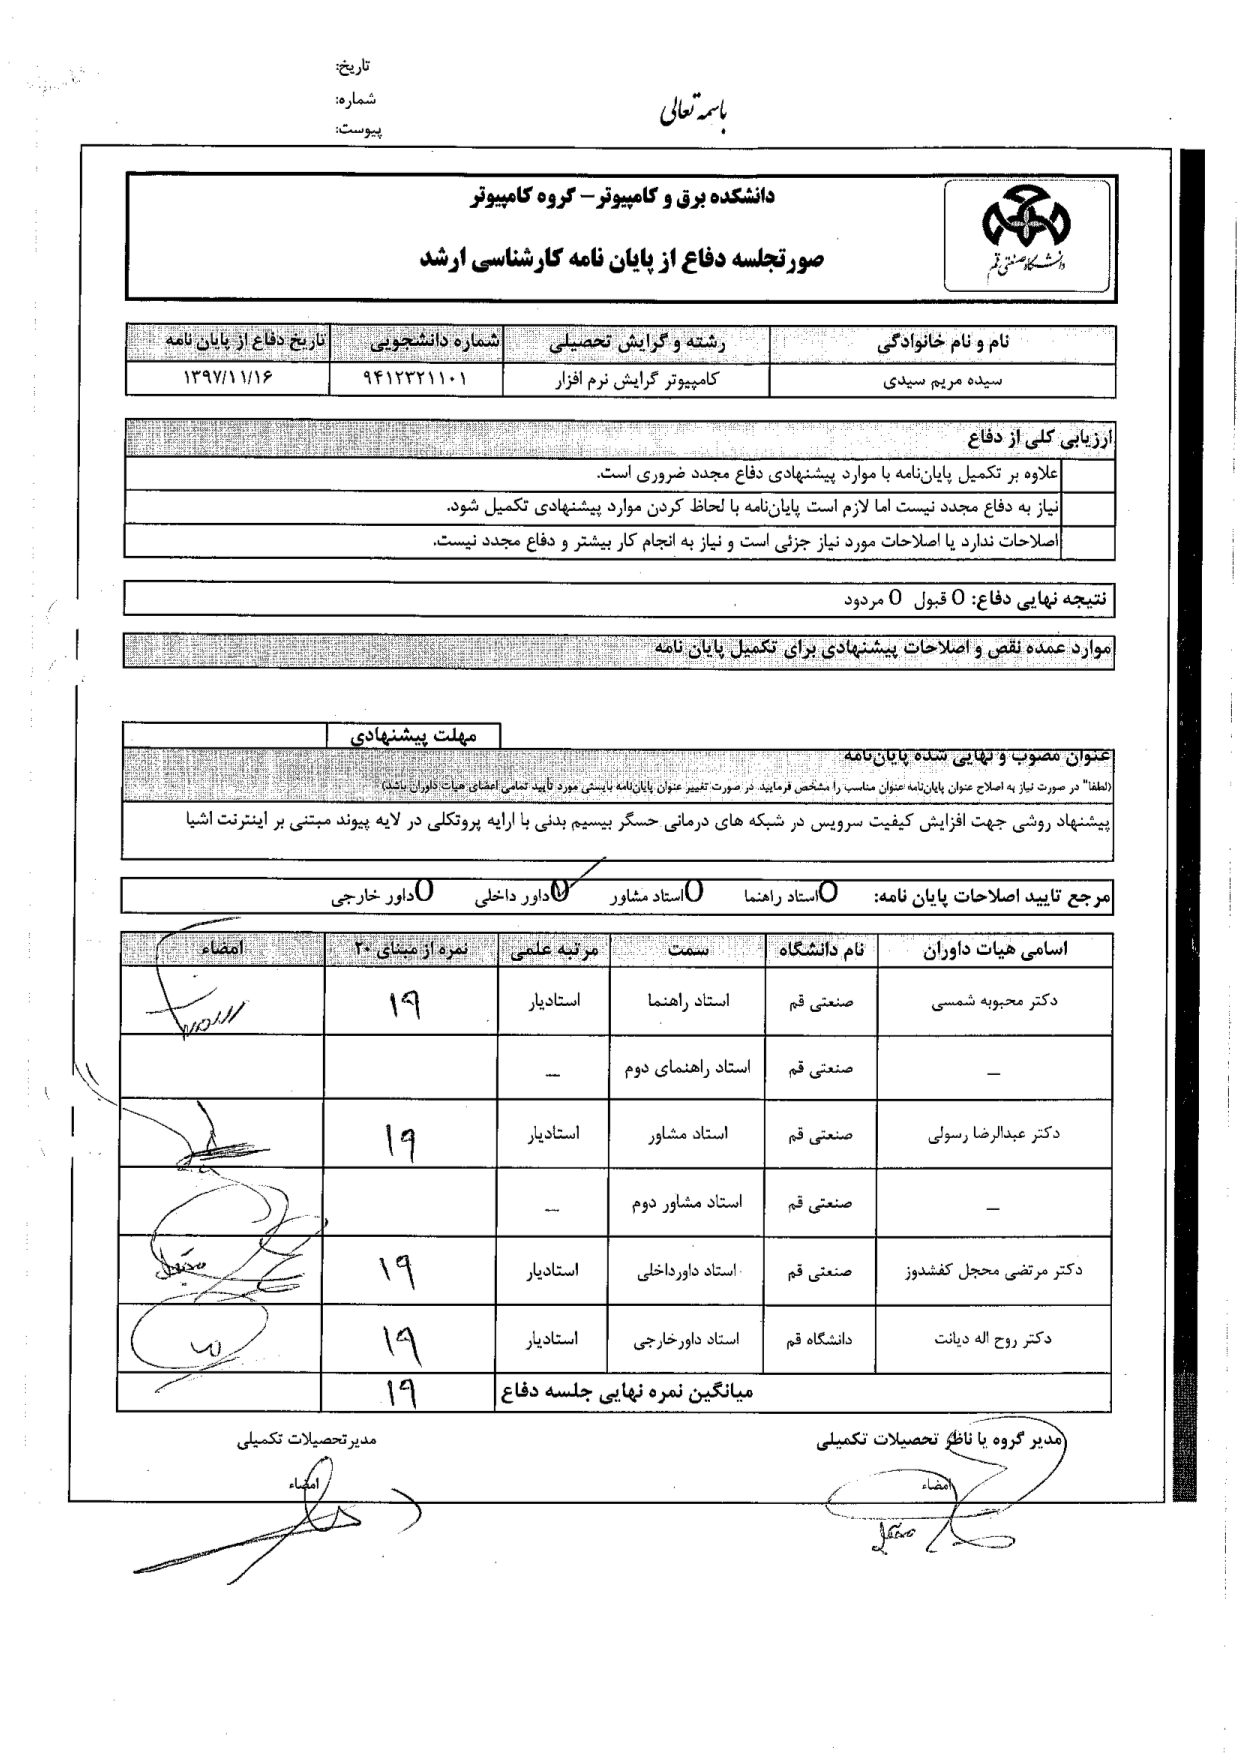 تاریخ:
شماره:
پیوست:
باسمه تعالی
دانشکده برق و کامپیوتر – گروه کامپیوتر
صورتجلسه دفاع از پایان نامه کارشناسی ارشد
دانشگاه صنعتی قم
نام و نام خانوادگی رشته و گرایش تحصیلی شماره دانشجویی تاریخ دفاع از پایان نامه
سیده مریم سیدی کامپیوتر گرایش نرم افزار ۹۴۱۲۳۲۱۱۰۱ ۱۳۹۷/۱۱/۱۶
ارزیابی کلی از دفاع
علاوه بر تکمیل پایان‌نامه با موارد پیشنهادی دفاع مجدد ضروری است.
نیاز به دفاع مجدد نیست اما لازم است پایان‌نامه با لحاظ کردن موارد پیشنهادی تکمیل شود.
اصلاحات ندارد یا اصلاحات مورد نیاز جزئی است و نیاز به انجام کار بیشتر و دفاع مجدد نیست.
نتیجه نهایی دفاع: O قبول O مردود
موارد عمده نقص و اصلاحات پیشنهادی برای تکمیل پایان نامه
مهلت پیشنهادی
عنوان مصوب و نهایی شده پایان‌نامه
(لطفا" در صورت نیاز به اصلاح عنوان پایان‌نامه عنوان مناسب را مشخص فرمایید. در صورت تغییر عنوان پایان‌نامه بایستی مورد تأیید تمامی اعضای هیات داوران باشد)
پیشنهاد روشی جهت افزایش کیفیت سرویس در شبکه های درمانی حسگر بیسیم بدنی با ارایه پروتکلی در لایه پیوند مبتنی بر اینترنت اشیا
مرجع تایید اصلاحات پایان نامه: O استاد راهنما O استاد مشاور O داور داخلی O داور خارجی
اسامی هیات داوران نام دانشگاه سمت مرتبه علمی نمره از مبنای ۲۰ امضاء
دکتر محبوبه شمسی صنعتی قم استاد راهنما استادیار ۱۹
– صنعتی قم استاد راهنمای دوم –
دکتر عبدالرضا رسولی صنعتی قم استاد مشاور استادیار ۱۹
– صنعتی قم استاد مشاور دوم –
دکتر مرتضی محجل کفشدوز صنعتی قم استاد داورداخلی استادیار ۱۹
دکتر روح اله دیانت دانشگاه قم استاد داورخارجی استادیار ۱۹
میانگین نمره نهایی جلسه دفاع ۱۹
مدیر گروه یا ناظر تحصیلات تکمیلی مدیرتحصیلات تکمیلی
امضاء امضاء